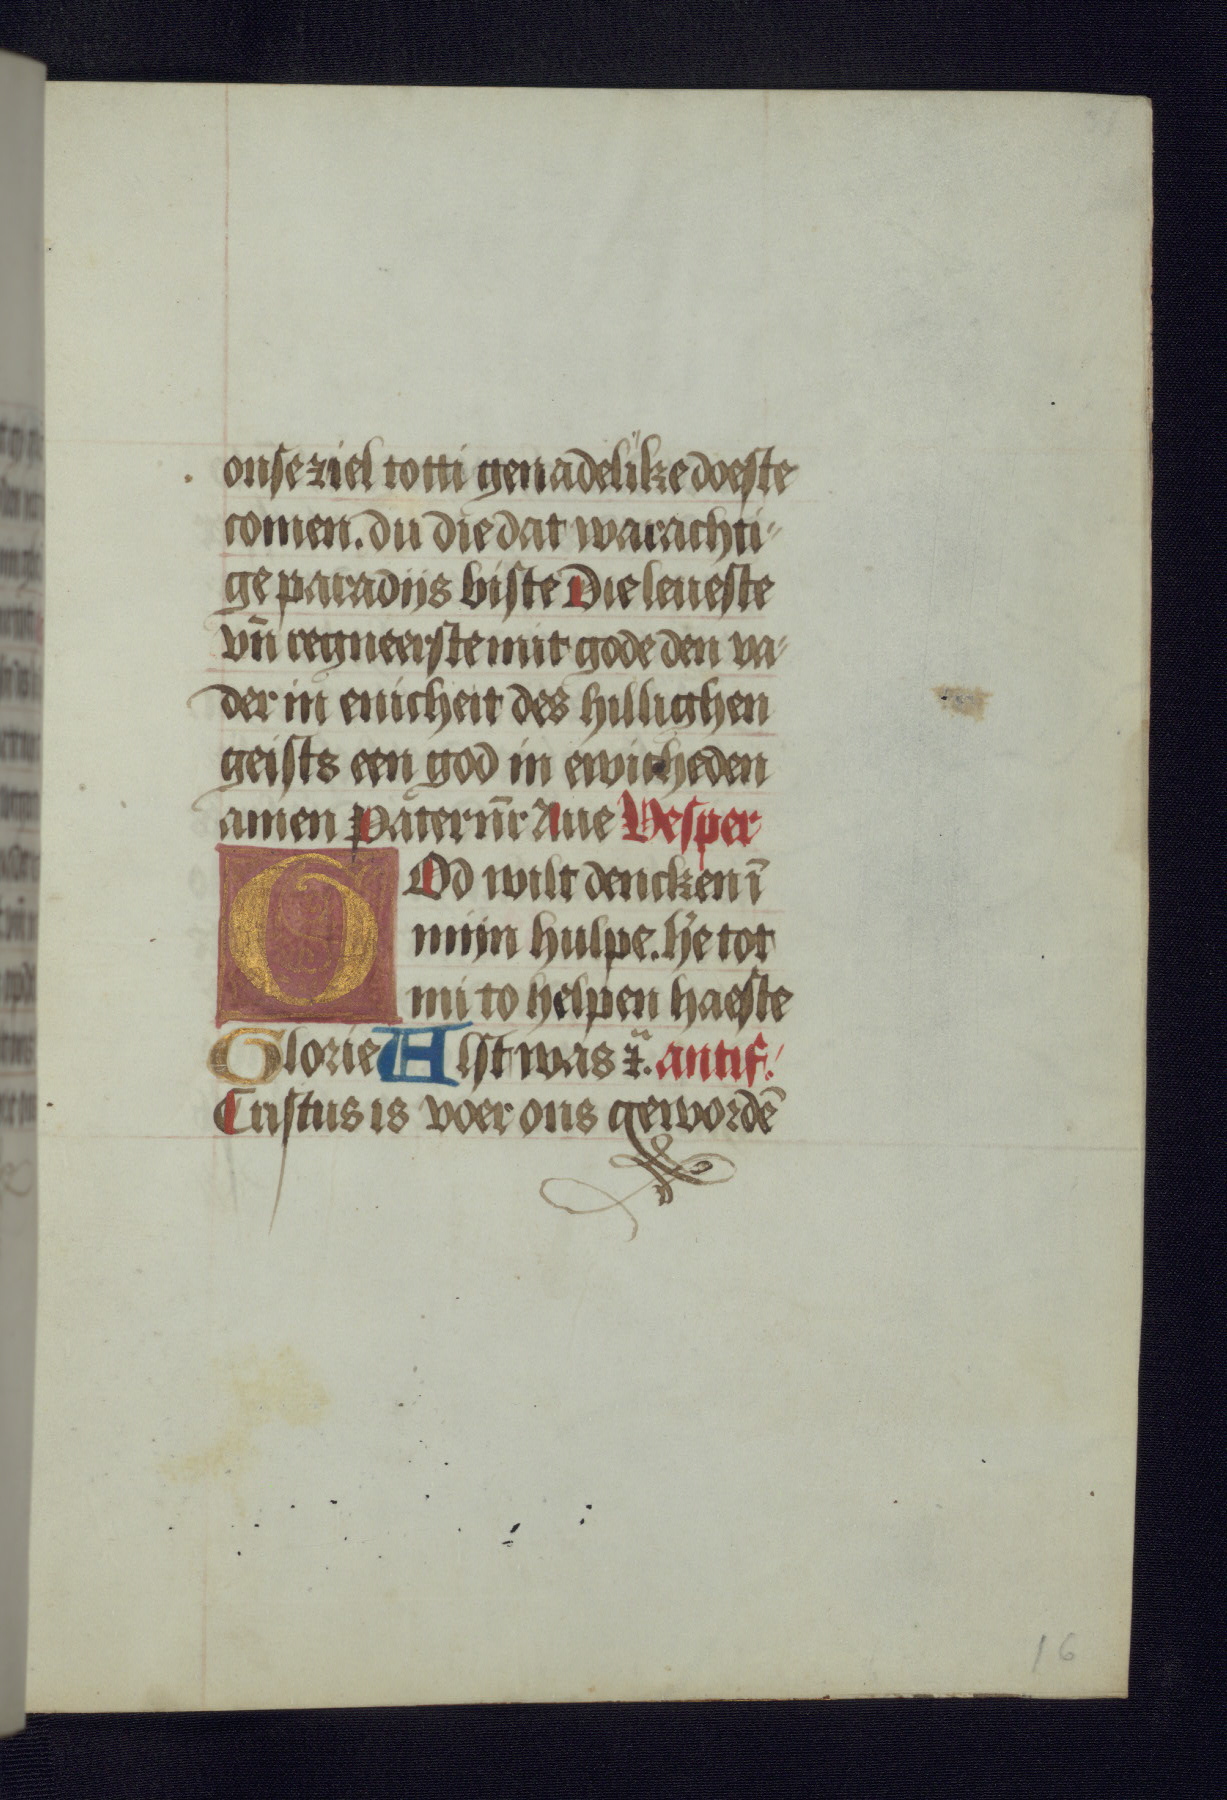 onse ziel totti genadelike doeste
comen. du die dat warachti-
ge paradijs biste Die leueste
vn̄ regneerste mit gode den va-
der in enicheit des hillighen
geists een god in ewicheden
amen Paternr̄ Aue Vesper
GOd wilt dencken ī
mijn hulpe. h̄e tot
mi to helpen haeste
Glorie Alst was ⁊. antif.
Cristus is voer ons gewordē
16